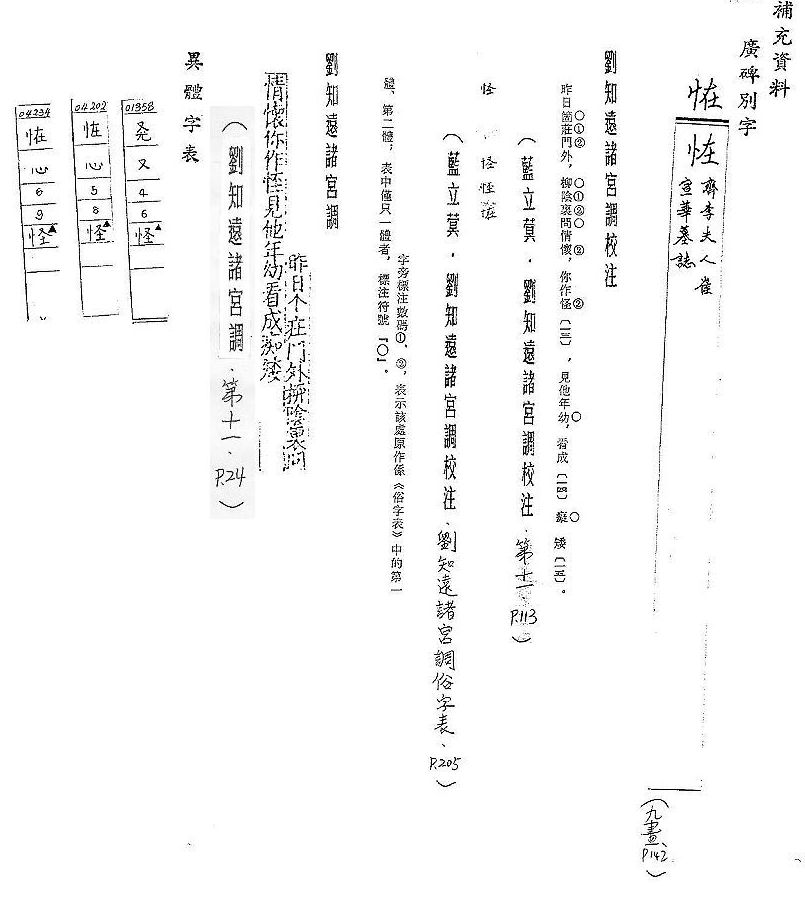 補充資料
廣碑別字
恠
恠 齊李夫人崔
宣華墓誌
(九畫、P.142)
劉知遠諸宮調校注
昨日箇莊門外，柳陰裏問情懷，你作怪〔一三〕，見他年幼，看成〔一四〕癡矮〔一五〕。
(藍立蓂．劉知遠諸宮調校注．第十一．P.113)
怪 怪
(藍立蓂．劉知遠諸宮調校注．劉知遠諸宮調俗字表、P.205)
字旁標注數碼①、②，表示該處原作係《俗字表》中的第一
體、第二體，表中僅只一體者，標注符號『○』。
劉知遠諸宮調
昨日个庄門外柳陰裏問
情懷你作怪見他年幼看成痴矮
(劉知遠諸宮調．第十一．P.24)
異體字表
01358
又
4
6
怪▲
04202
心
5
8
怪▲
04234
恠
心
6
9
怪▲